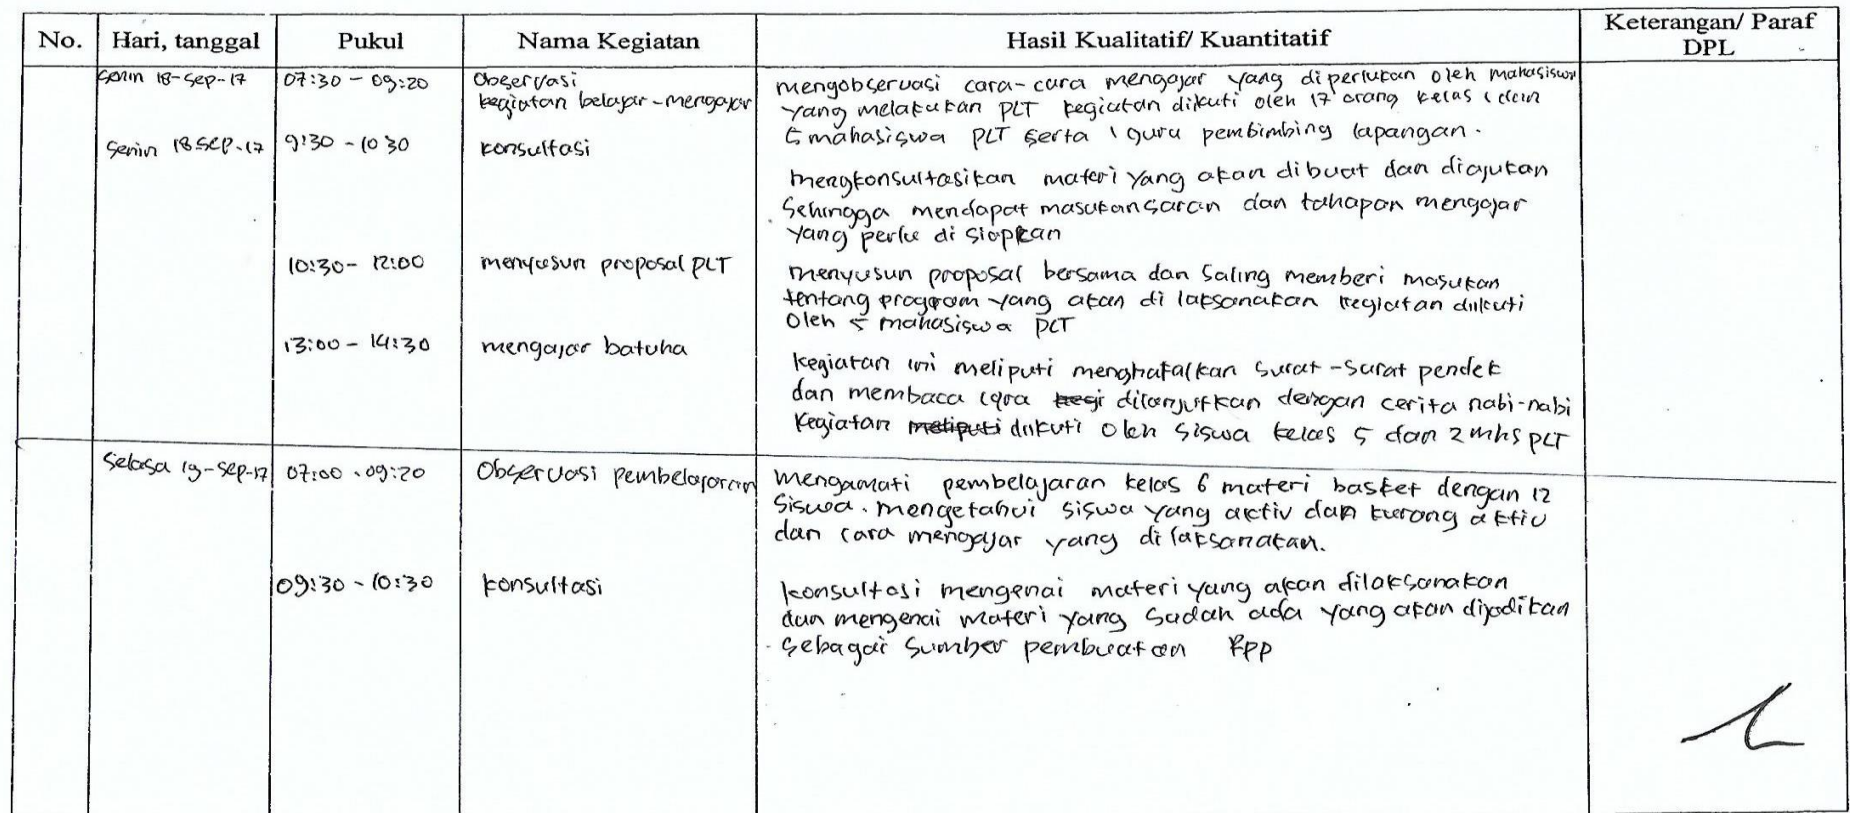 No. Hari, tanggal Pukul Nama Kegiatan Hasil Kualitatif/ Kuantitatif Keterangan/ Paraf DPL
Senin 18-Sep-17 07:30 - 09:20 Observasi kegiatan belajar-mengajar
mengobservasi cara-cara mengajar yang diperlukan oleh mahasiswa
yang melakukan PLT kegiatan diikuti oleh 17 orang kelas 1 dan
5 mahasiswa PLT serta 1 guru pembimbing lapangan.
Senin 18 Sep-17 9:30 - 10 30 konsultasi
mengkonsultasikan materi yang akan dibuat dan diajukan
Sehingga mendapat masukan saran dan tahapan mengajar
yang perlu di siapkan
10:30 - 12:00 menyusun proposal PLT
menyusun proposal bersama dan saling memberi masukan
tentang program yang akan di laksanakan kegiatan diikuti
oleh 5 mahasiswa PLT
13:00 - 14:30 mengajar batuha
kegiatan ini meliputi menghafalkan surat-surat pendek
dan membaca iqra kegi dilanjutkan dengan cerita nabi-nabi
kegiatan meliputi diikuti oleh siswa kelas 5 dan 2 mhs PLT
Selasa 19-Sep-17 07:00 - 09:20 Observasi pembelajaran
mengamati pembelajaran kelas 6 materi basket dengan 12
siswa. mengetahui siswa yang aktiv dan kurang aktiv
dan cara mengajar yang di laksanakan.
09:30 - 10:30 konsultasi
konsultasi mengenai materi yang akan dilaksanakan
dan mengenai materi yang sudah ada yang akan dijadikan
sebagai sumber pembuatan Rpp